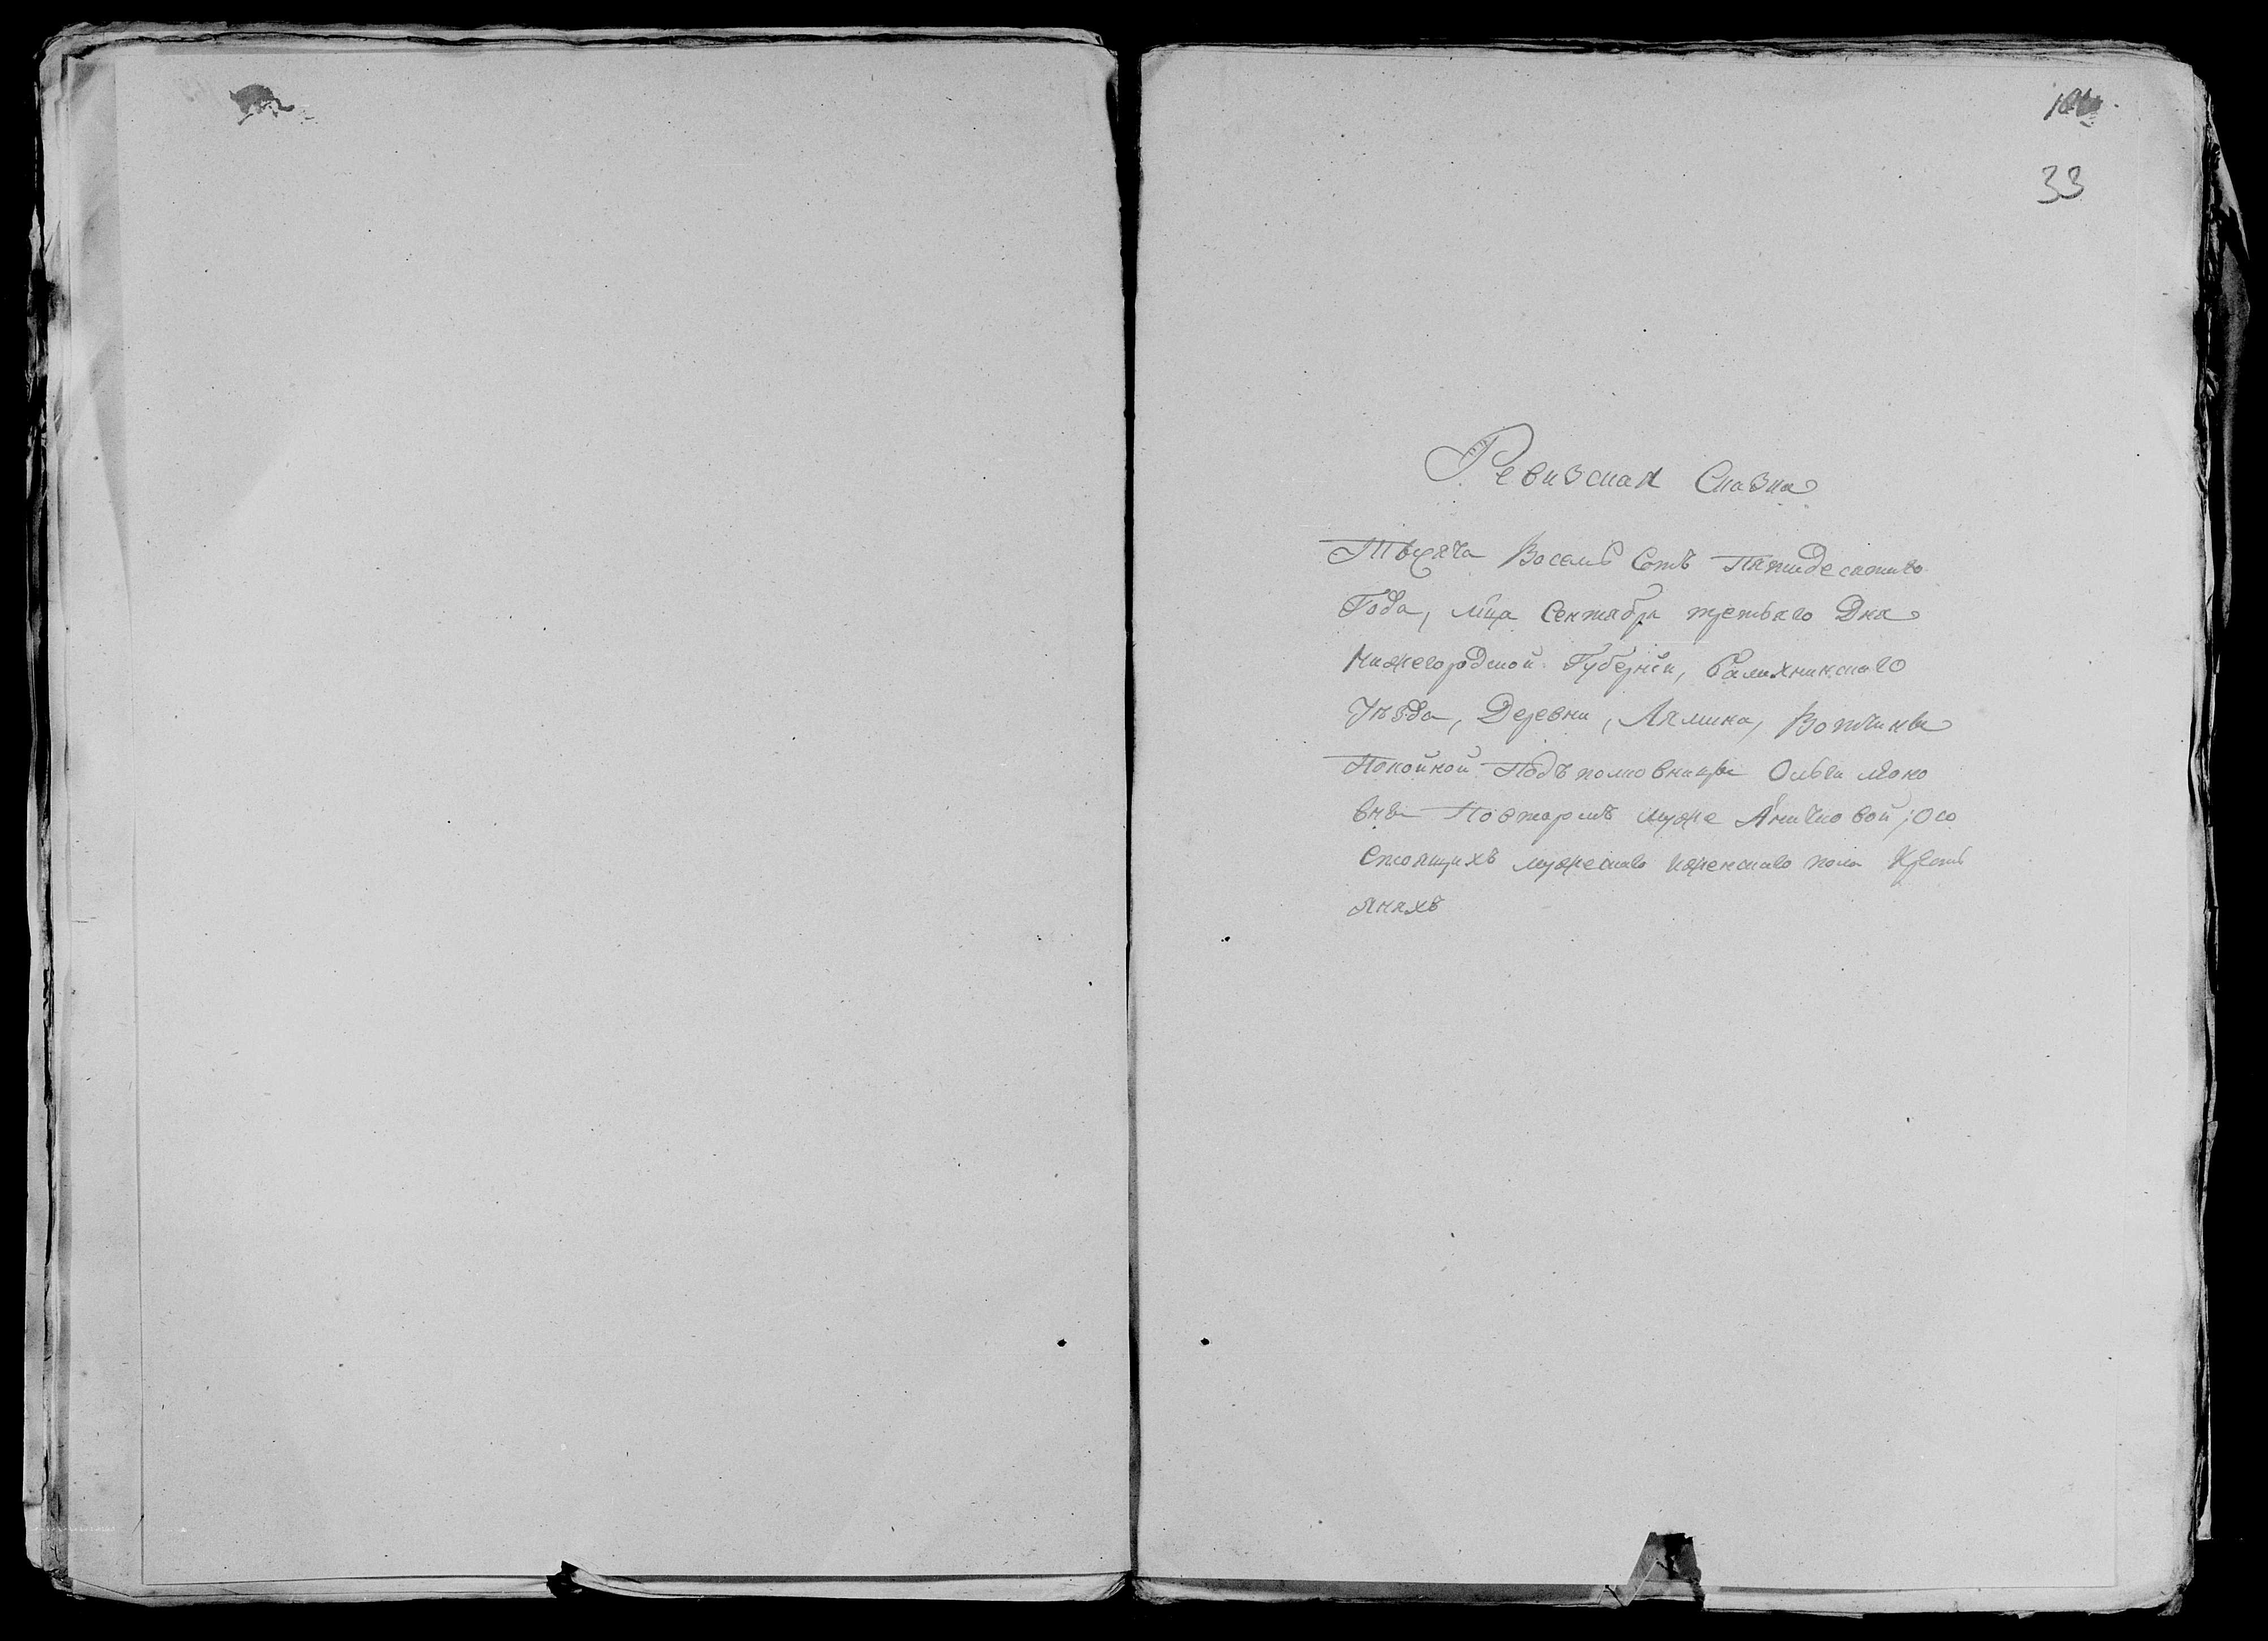 33
Ревизская Сказка
Тысяча Восемь Сотъ Пятидесятаго
Года, мца Сентября третьяго Дня
Нижегородской Губерніи, Балахнинскаго
Уѣзда, Деревни, Лялина, Вотчины
Покойной Подъполковницы Ольги Яко
вны Повторомъ муже Аничковой; Осо
стоящихъ мужеска иженскаго пола Кресть
янахъ